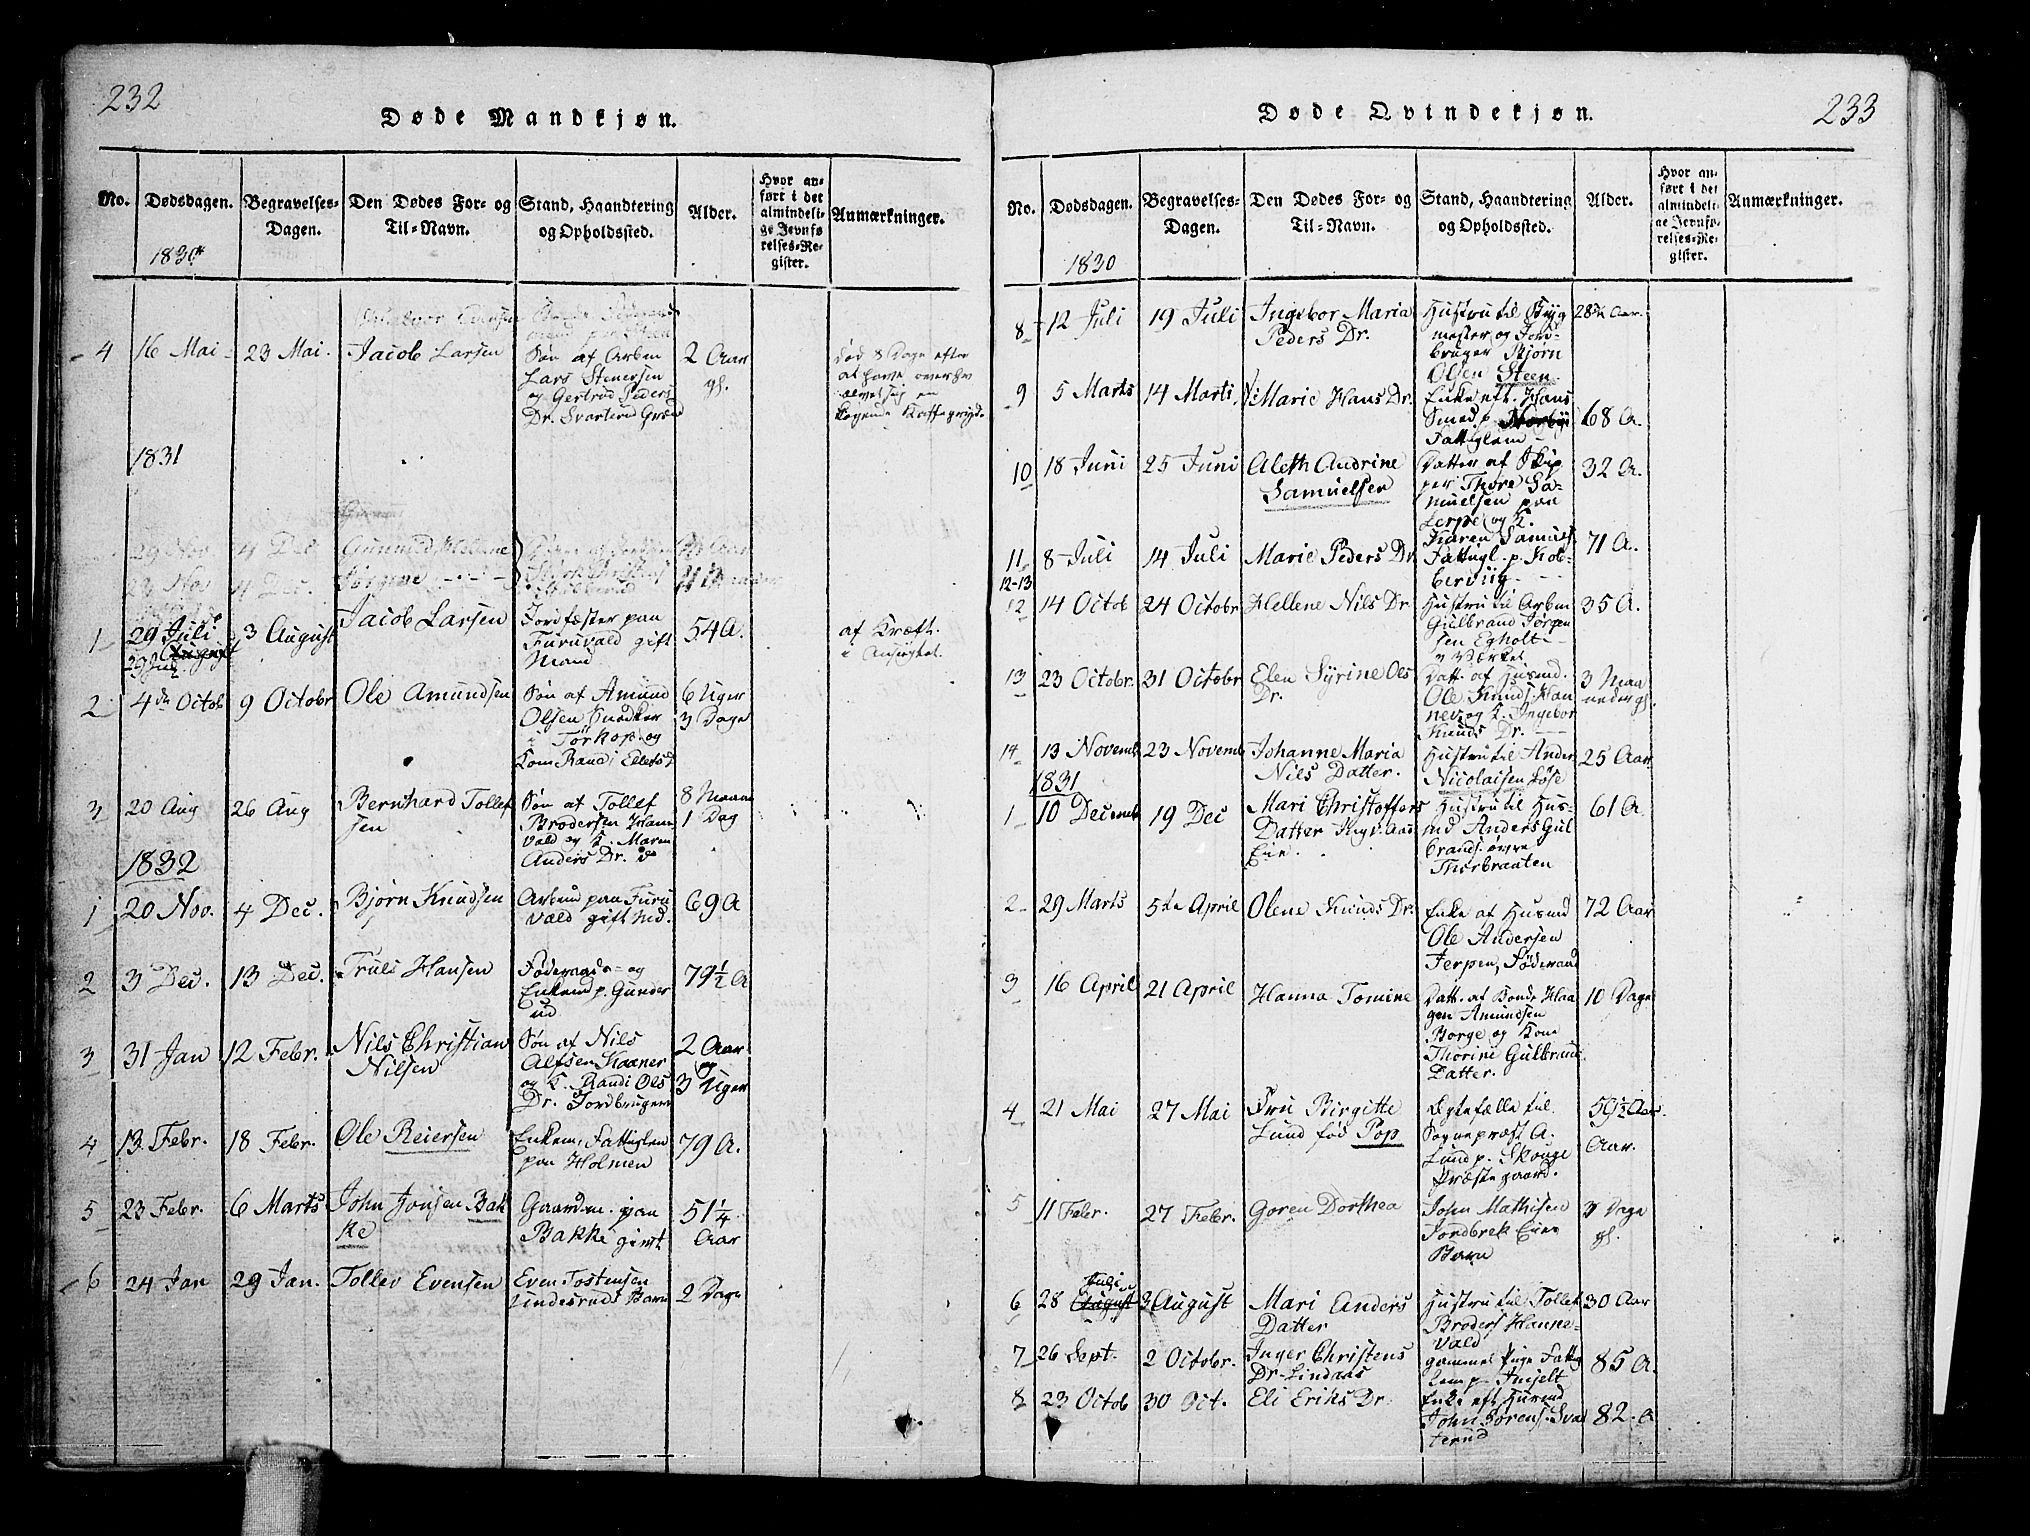 232
Døde Mandkjøn.
No.
Dødsdagen.
Begravelses-
Dagen.
Den Dødes For- og
Til-Navn.
Stand, Haandtering
og Opholdssted.
Alder.
Hvor an-
ført i det
almindeli-
ge Jevnfø
relses-Re-
gister.
Anmærkninger.
1830
4 16 Mai 23 Mai. Jacob Larsen
Søn af Arbm
Lars Stenersen
og Gertrud Peders
Dr. Svarterud
2 Aar
gl.
død 8 Dage efter
at have
en
kogende
1831
29 Nov. 4 Dec Gunnild Helene
23 Nov 4 Dec. Jørgine
1 29 Juli 3 August Jacob Larsen
Jordfester paa
Furuvald gift
Mand
54 A.
af Kræft
i Ansigtet.
2 4de Octob 9 Octobr Ole Amundsen
Søn af Amund
Olsen Snedker
i Tørkop og
Kom Randi
6 Uger
3 Dage
3 20 Aug 26 Aug Bernhard Tollef
sen
Søn af Tollef
Brodersen Hanne
vald og K. Maren
Anders Dr.
8 Maan
1 Dag
1832
1 20 Nov. 4 Dec. Bjørn Knudsen
Arbmd paa Furu
vald gift Md.
69 A
2 3 Dec. 13 Dec. Truls Hansen
Føderaads- og
Enkemd p. Gunder
ud
79½ A
3 31 Jan 12 Febr. Nils Christian
Nilsen
Søn af Nils
Alfsen Haaner
og K. Randi Ols
Dr. Jordbruger
2 Aar
og
3 Uger
4 13 Febr. 18 Febr. Ole Reiersen
Enkem, Fattiglem
paa Holmen
79 A.
5 23 Febr. 6 Marts John Jonsen Bak
ke
Gaardm. paa
Bakke givt
51¼
Aar
6 24 Jan 29 Jan. Tollev Evensen
Even Tostensen
Lindesruds Barn
2 Dage
233
Døde Qvindekjøn.
No.
Dødsdagen.
Begravelses-
Dagen.
Den Dødes For- og
Til-Navn.
Stand, Haandtering
og Opholdssted.
Alder.
Hvor an-
ført i det
almindeli-
ge Jevnfø-
relses-Re-
gister.
Anmærkninger.
1830
8 12 Juli 19 Juli Ingebor Maria
Peders Dr.
Hustru til Byg
mester og Jord
bruger Bjørn
Olsen Steen.
28¾ Aar.
9 5 Marts 14 Marts Marie Hans Dr.
Enke eft. Hans
Smed p.
Fattiglem
68 A.
10 18 Juni 25 Juni Aleth Andrine
Samuelsen
Datter af Skip
per Thore Sa-
muelsen paa
Jerpe og K.
Karen Samuels
32 A.
11 8 Juli 14 Juli Marie Peders Dr
Fattigl. p. Hol-
berviig
71 A.
12-13
12 14 Octob 24 Octobr Hellene Nils Dr
Hustru til Arbm
Gulbrand Jørgen
sen Egholt
v Værket
35 A.
13 23 Octobr. 31 Octobr Elen Syrine Ols
Dr.
Datt. af Husmd.
Ole Knuds. Han
nev. og K. Ingebor
Knuds Dr.
3 Maa
neder gl.
14 13 Novemb 23 Novemb Johanne Maria
Nils Datter.
Hustru til Ander
Nicolaisen Løse
25 Aar
1831
1 10 Decemb 19 Dec Mari Christoffers
Datter
Eie.
Hustru til Hus-
md Anders Gul
brands. øvre
Thorbraaten
61 A.
2 29 Marts 5te April Olene Knuds Dr.
Enke af Husmd
Ole Andersen
Jerpen, Føderaad
72 Aar
3 16 April 21 April Hanna Tomine
Datt. af Bonde Haa
gen Amundsen
Borge og Kone
Thorine Gulbrand
Datter.
10 Dage
4 21 Mai 27 Mai Fru Birgitte
Lund fød Pop
Egtefælle til
Sognepræst A.
Lund p. Skouge
Præstegaard.
59½ Aar
Aar.
5 11 Febr. 27 Febr. Goren Dorthea
John Mathisen
Jordbrek Eies
Barn
3 Dage
gl.
Juli
6 28 August 3 August Mari Anders
Datter
Hustru til Tollef
Broders Hanne-
vald
30 Aar
7 26 Sept. 2 Octobr. Inger Christens
Dr. Lindaas
gammel Pige Fattig
lem p.
85 A.
8 23 Octob 30 Oct. Eli Eriks Dr.
Enke eft Husmd
John Sørens. Svar
terud
82. A